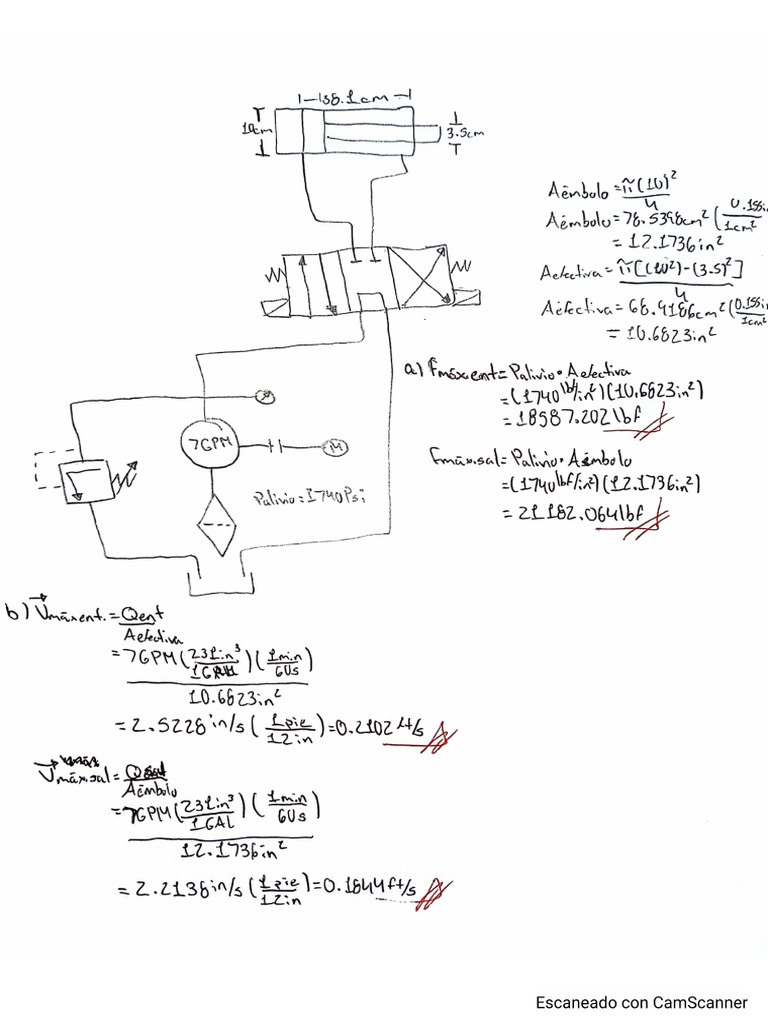 138.1cm
10cm
3.5cm
Aémbolo=π(10)²
4
Aémbolo=78.5398cm²(0.155in
1cm²
=12.1736in²
Aefectiva=π[(10²)-(3.5)²]
4
Aefectiva=68.9186cm²(0.155in
1cm²
=10.6823in²
a) Fmáxent=Palivio·Aefectiva
=(1740lbf/in²)(10.6823in²)
=18587.202lbf
Fmáx.sal=Palivio·Aémbolo
=(1740lbf/in²)(12.1736in²)
=21182.064lbf
7GPM
M
Palivio=1740Psi
b) Vmáxent.=Qent
Aefectiva
=7GPM(231in³)(1min)
1GAL 60s
10.6823in²
=2.5228in/s(1pie)=0.2102ft/s
12in
Vmáx.sal=Qsal
Aémbolo
=7GPM(231in³)(1min)
1GAL 60s
12.1736in²
=2.2138in/s(1pie)=0.1844ft/s
12in
Escaneado con CamScanner